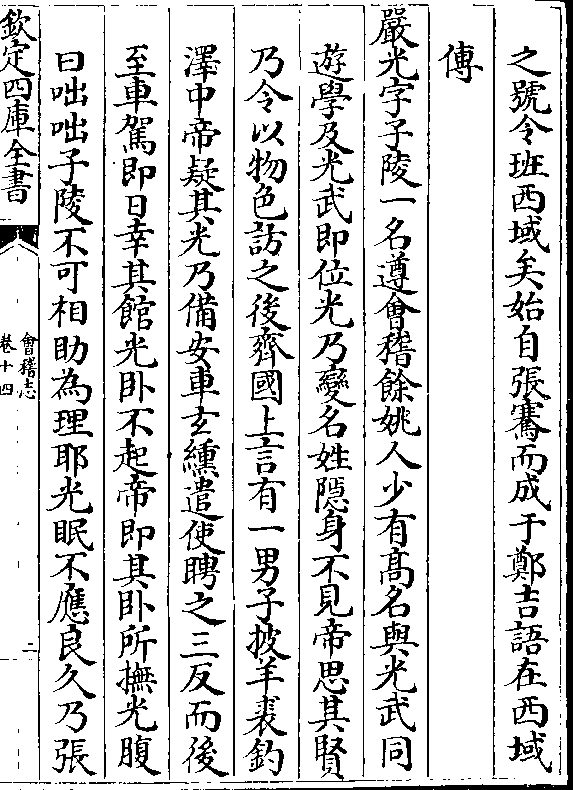 之號令班西域矣始自張騫而成于鄭吉語在西域
傳
嚴光字子陵一名遵會稽餘姚人少有高名與光武同
遊學及光武即位光乃變名姓隱身不見帝思其賢
乃令以物色訪之後齊國上言有一男子披羊裘釣
澤中帝疑其光乃備安車玄纁遣使聘之三反而後
至車駕即日幸其館光卧不起帝即其卧所撫光腹
曰咄咄子陵不可相助為理耶光眠不應良久乃張
欽定四庫全書
會稽志
卷十四
二